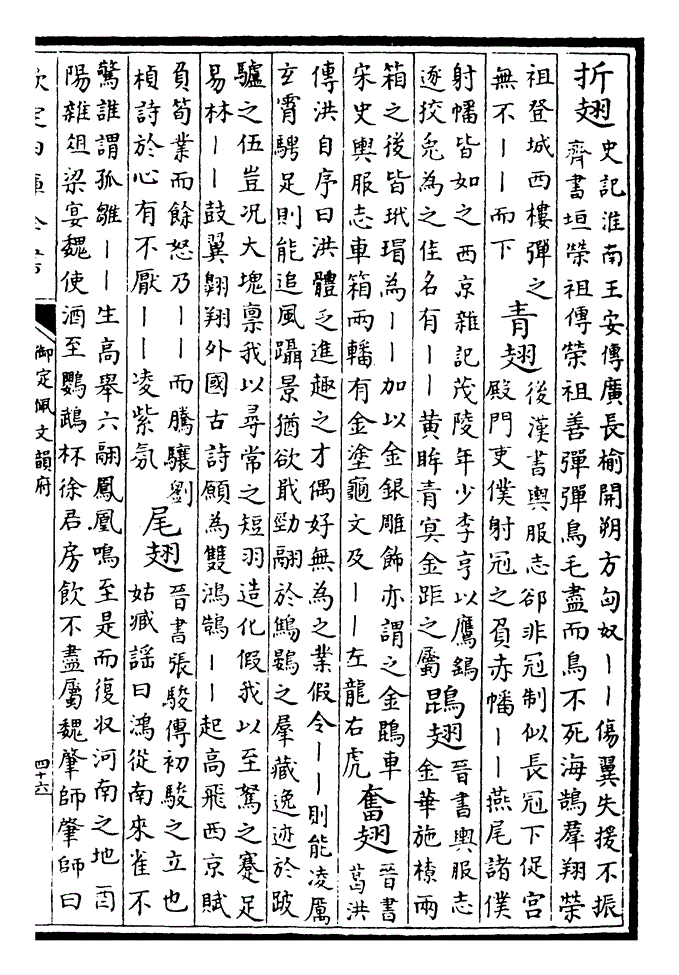 折翅 史記淮南王安傳廣長榆開朔方匈奴丨丨傷翼失援不振
齊書垣榮祖傳榮祖善彈彈鳥毛盡而鳥不死海鵠羣翔榮
祖登城西樓彈之
無不丨丨而下
青翅 後漢書輿服志卻非冠制似長冠下促宮
殿門吏僕射冠之負赤幡丨丨燕尾諸僕
射幡皆如之西京雜記茂陵年少李亨以鷹鷂
逐狡兔為之佳名有丨丨黃眸青冥金距之屬
鵾翅 晉書輿服志
金華施橑兩
箱之後皆玳瑁為丨丨加以金銀雕飾亦謂之金鵾車
宋史輿服志車箱兩轓有金塗龜文及丨丨左龍右虎
奮翅 晉書
葛洪
傳洪自序曰洪體乏進趣之才偶好無為之業假令丨丨則能凌厲
玄霄騁足則能追風躡景猶欲戢勁翮於鷦鷃之羣藏逸迹於跛
驢之伍豈況大塊禀我以尋常之短羽造化假我以至駑之蹇足
易林丨丨鼓翼翺翔外國古詩願為雙鴻鵠丨丨起高飛西京賦
負筍業而餘怒乃丨丨而騰驤劉
楨詩於心有不厭丨丨凌紫氛
尾翅 晉書張駿傳初駿之立也
姑臧謠曰鴻從南來雀不
驚誰謂孤雛丨丨生高舉六翮鳳凰鳴至是而復收河南之地 酉
陽雜俎梁宴魏使酒至鸚鵡杯徐君房飲不盡屬魏肇師肇師曰
欽定四庫全書
御定佩文韻府
四十六